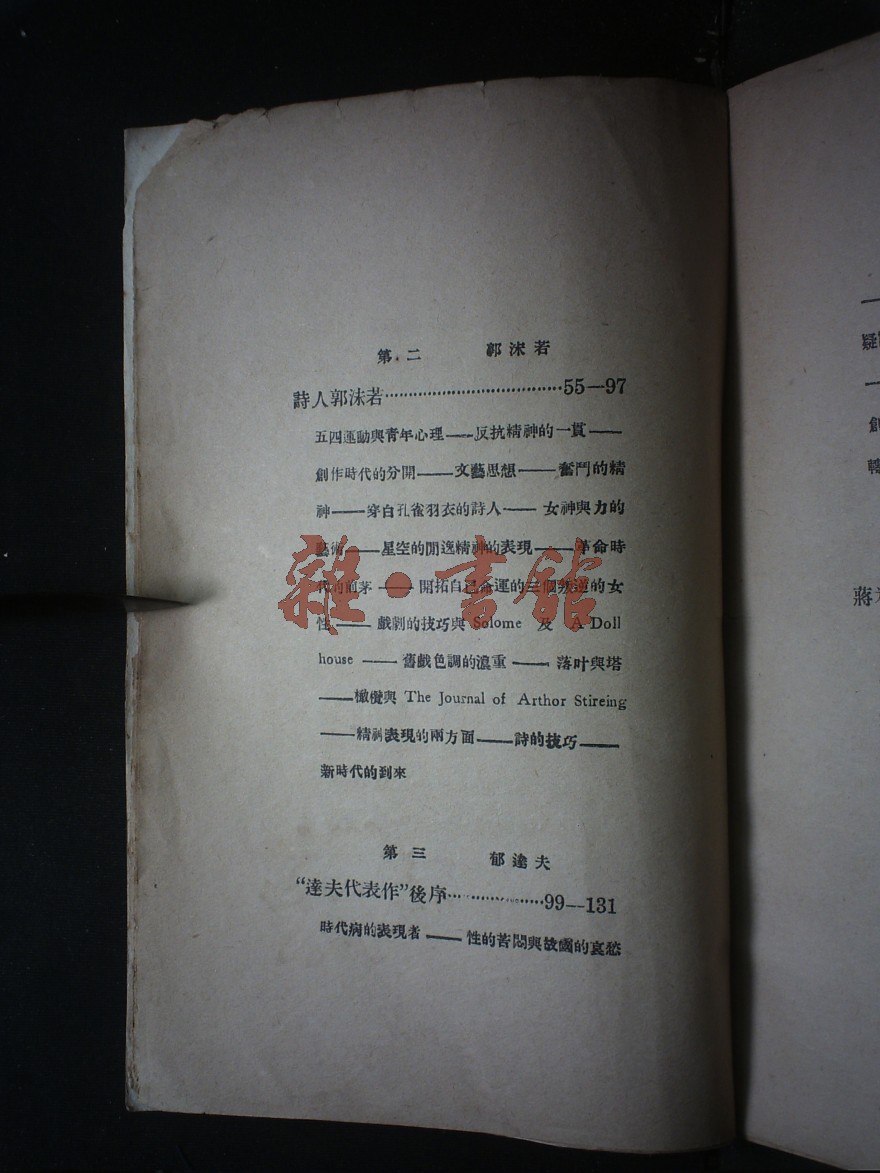 第二 郭沫若
詩人郭沫若……………………………55—97
五四運動與青年心理——反抗精神的一貫——
創作時代的分開——文藝思想——奮鬥的精
神——穿白孔雀羽衣的詩人——女神與力的
藝術——星空的閒逸精神的表現——革命時
代的前茅——開拓自己命運的三個叛逆的女
性——戲劇的技巧與 Solome 及 A Doll
house——舊戲色調的濃重——落叶與塔
——橄欖與 The Journal of Arthor Stireing
——精神表現的兩方面——詩的技巧——
新時代的到來
第三 郁達夫
“達夫代表作”後序……………99—131
時代病的表現者——性的苦悶與故國的哀愁
雜·書館
疑
創
轉
蔣